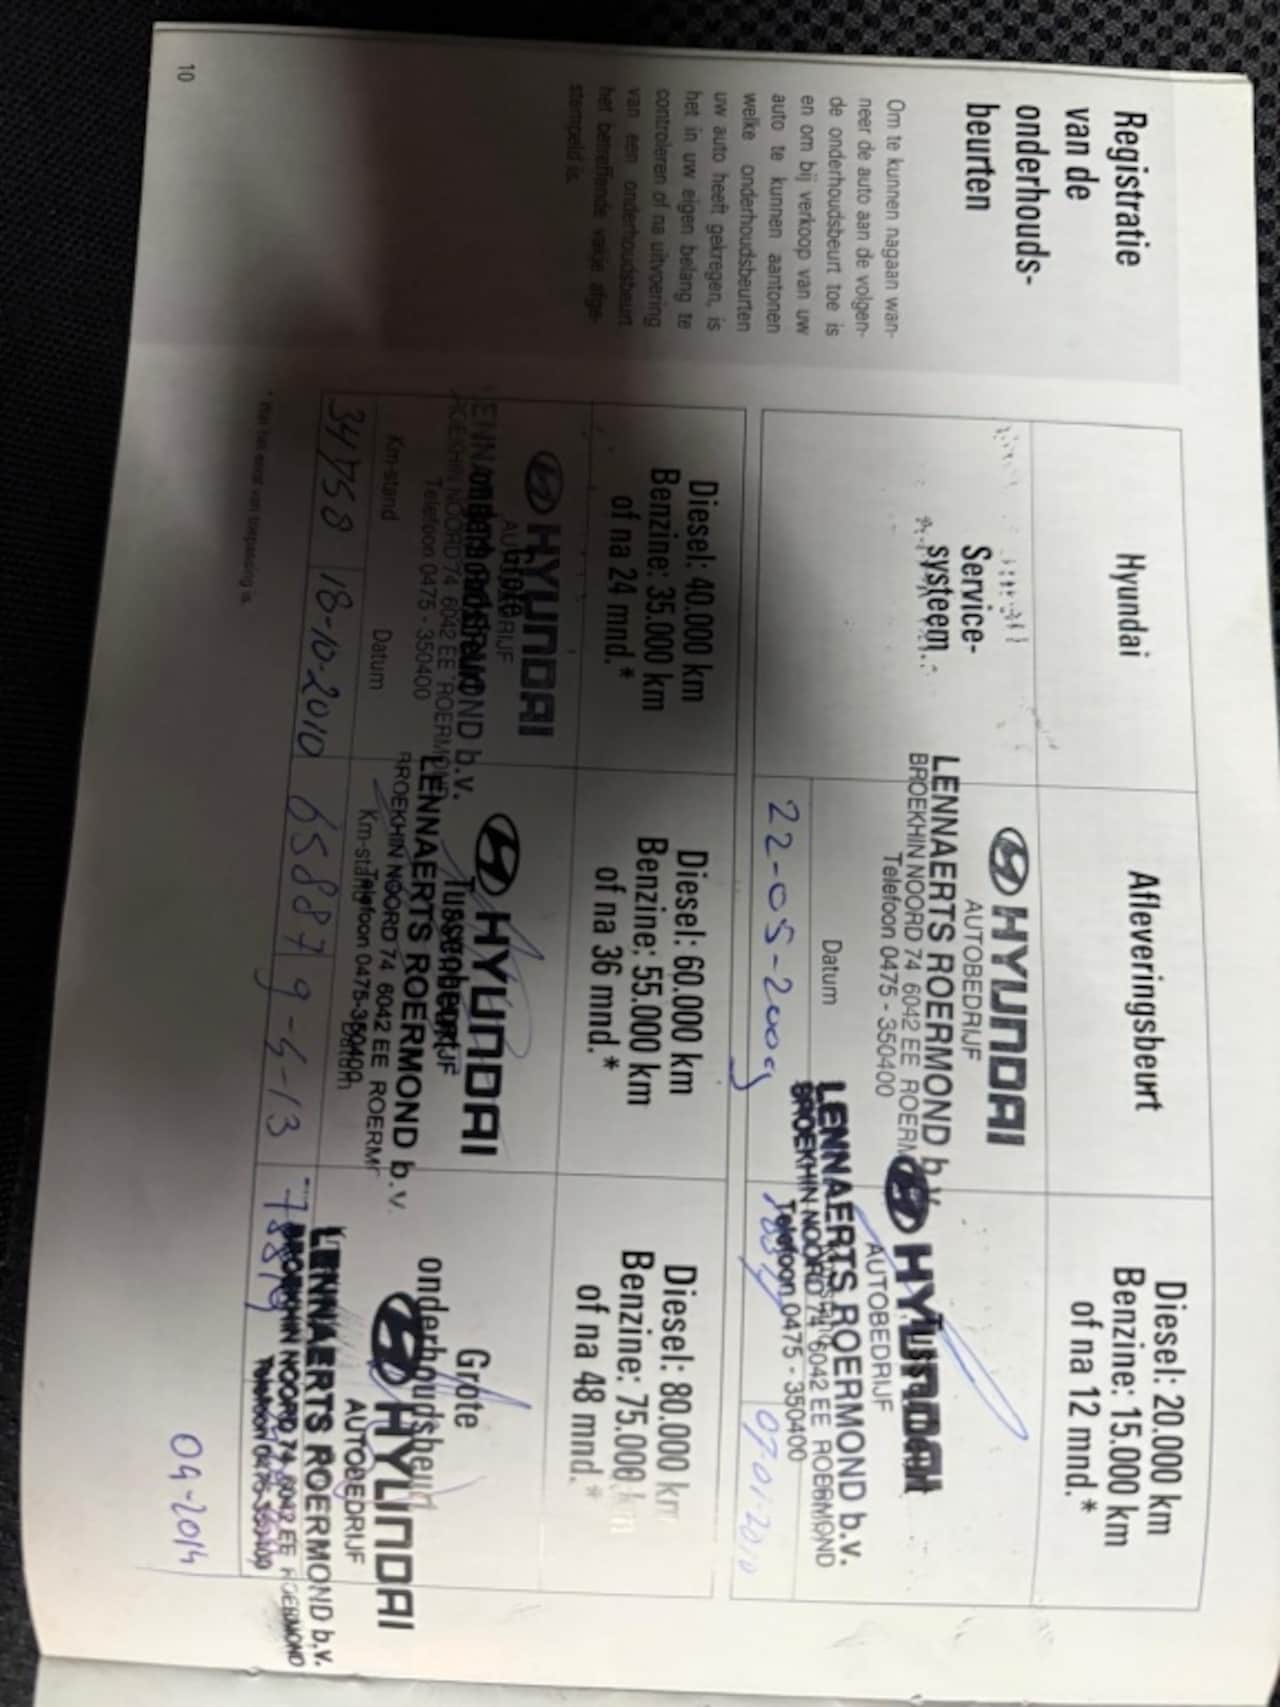 Registratie
van de
onderhouds-
beurten
Om te kunnen nagaan wan-
neer de auto aan de volgen-
de onderhoudsbeurt toe is
en om bij verkoop van uw
auto te kunnen aantonen
welke onderhoudsbeurten
uw auto heeft gekregen, is
het in uw eigen belang te
controleren of na uitvoering
van een onderhoudsbeurt
het betreffende vakje afge-
stempeld is.
10
Hyundai
Service-
systeem
Afleveringsbeurt
HYUNDAI
AUTOBEDRIJF
LENNAERTS ROERMOND b.v.
BROEKHIN NOORD 74 6042 EE ROERM
Telefoon 0475 - 350400
Datum
22-05-2009
Diesel: 20.000 km
Benzine: 15.000 km
of na 12 mnd.*
HYUNDAI
AUTOBEDRIJF
LENNAERTS ROERMOND b.v.
BROEKHIN NOORD 74 6042 EE ROERMOND
Telefoon 0475 - 350400
07-01-2010
Diesel: 40.000 km
Benzine: 35.000 km
of na 24 mnd.*
HYUNDAI
Grote
ROEKHIN NOORD 74 6042 EE ROERMOND
Telefoon 0475 - 350400
Km-stand
Datum
34758 18-10-2010
Diesel: 60.000 km
Benzine: 55.000 km
of na 36 mnd.*
HYUNDAI
Tussenbeurt
LENNAERTS ROERMOND b.v.
BROEKHIN NOORD 74 6042 EE ROERM
Telefoon 0475-350400
Km-stand
Datum
65887
Diesel: 80.000 km
Benzine: 75.000 km
of na 48 mnd.*
Grote
onderhoudsbeurt
HYUNDAI
AUTOBEDRIJF
LENNAERTS ROERMOND b.v.
BROEKHIN NOORD 74 6042 EE ROERMOND
Telefoon 0475-350400
04-2014
* Wat het eerst van toepassing is.